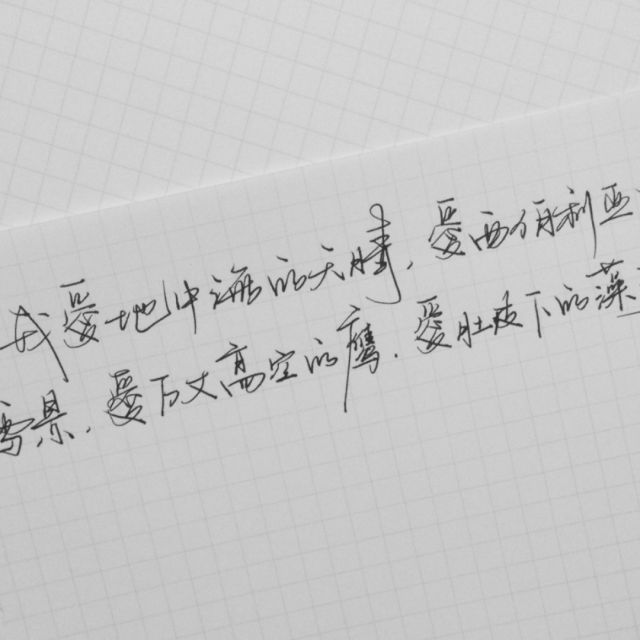 我愛地中海的天晴，愛西伯利亚
雪景，愛万丈高空的鹰，愛肚皮下的藻